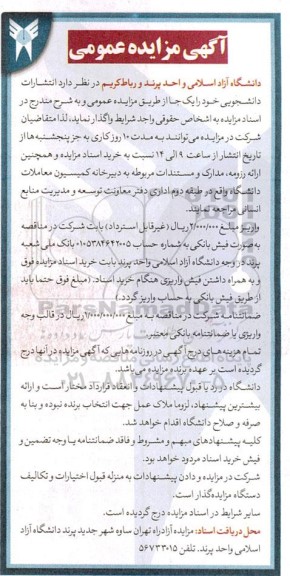 آگهی مزایده عمومی
دانشگاه آزاد اسلامی واحد پرند و رباط‌کریم در نظر دارد انتشارات
دانشجویی خود را یک جا از طریق مزایده عمومی و به شرح مندرج در
اسناد مزایده به اشخاص حقوقی واجد شرایط واگذار نماید، لذا متقاضیان
شرکت در مزایده می‌توانند به مدت ۱۰ روز کاری به جز پنجشنبه‌ها از
تاریخ انتشار از ساعت ۹ الی ۱۴ نسبت به خرید اسناد مزایده و همچنین
ارائه رزومه، مدارک و مستندات مربوطه به دبیرخانه کمیسیون معاملات
دانشگاه واقع در طبقه دوم اداری دفتر معاونت توسعه و مدیریت منابع
انسانی مراجعه نمایند.
واریز مبلغ ۲/۰۰۰/۰۰۰ ریال (غیرقابل استرداد) بابت شرکت در مناقصه
به صورت فیش بانکی به شماره حساب ۰۱۰۵۳۸۴۶۴۲۰۰۵ بانک ملی شعبه
پرند در وجه دانشگاه آزاد اسلامی واحد پرند بابت خرید اسناد مزایده فوق
و به همراه داشتن فیش واریزی هنگام خرید اسناد. (مبلغ فوق حتما باید
از طریق فیش بانکی به حساب واریز گردد.)
ضمانتنامه شرکت در مناقصه به مبلغ ۶/۰۰۰/۰۰۰/۰۰۰ ریال در قالب وجه
واریزی یا ضمانتنامه بانکی معتبر.
تمام هزینه‌های درج آگهی در روزنامه‌هایی که آگهی مزایده در آنها درج
گردیده است بر عهده برنده مزایده می‌باشد.
دانشگاه در رد یا قبول پیشنهادات و انعقاد قرارداد مختار است و ارائه
بیشترین پیشنهاد، لزوما ملاک عمل جهت انتخاب برنده نبوده و بنا به
صرفه و صلاح دانشگاه اقدام خواهد شد.
کلیه پیشنهادهای مبهم و مشروط و فاقد ضمانتنامه یا وجه تضمین و
فیش خرید اسناد مردود خواهد بود.
شرکت در مزایده و دادن پیشنهادات به منزله قبول اختیارات و تکالیف
دستگاه مزایده‌گذار است.
سایر شرایط در اسناد مزایده درج گردیده است.
محل دریافت اسناد: مزایده آزادراه تهران ساوه شهر جدید پرند دانشگاه آزاد
اسلامی واحد پرند. تلفن ۵۶۷۳۳۰۱۵